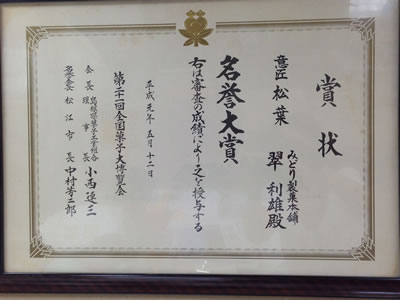 賞状
みどり製菓本舗
翠利雄殿
意匠 松葉
名誉大賞
右は審査の成績により之を授与する
平成元年五月十二日
第二十一回全国菓子大博覧会
会長 島根県菓子工業組合理事長 小西運三
名誉会長 松江市長 中村芳二郎